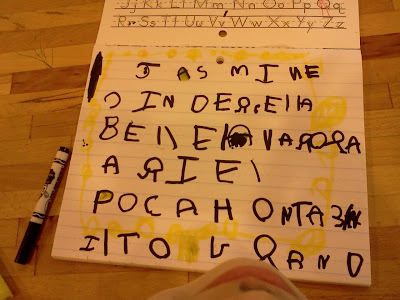 Jj Kk Ll Mm Nn Oo Pp Qq
Rr Ss Tt Uu Vv Ww Xx Yy Zz
JASMINE
CINDERElla
BEllE
ARIEl
POCAHONTAS